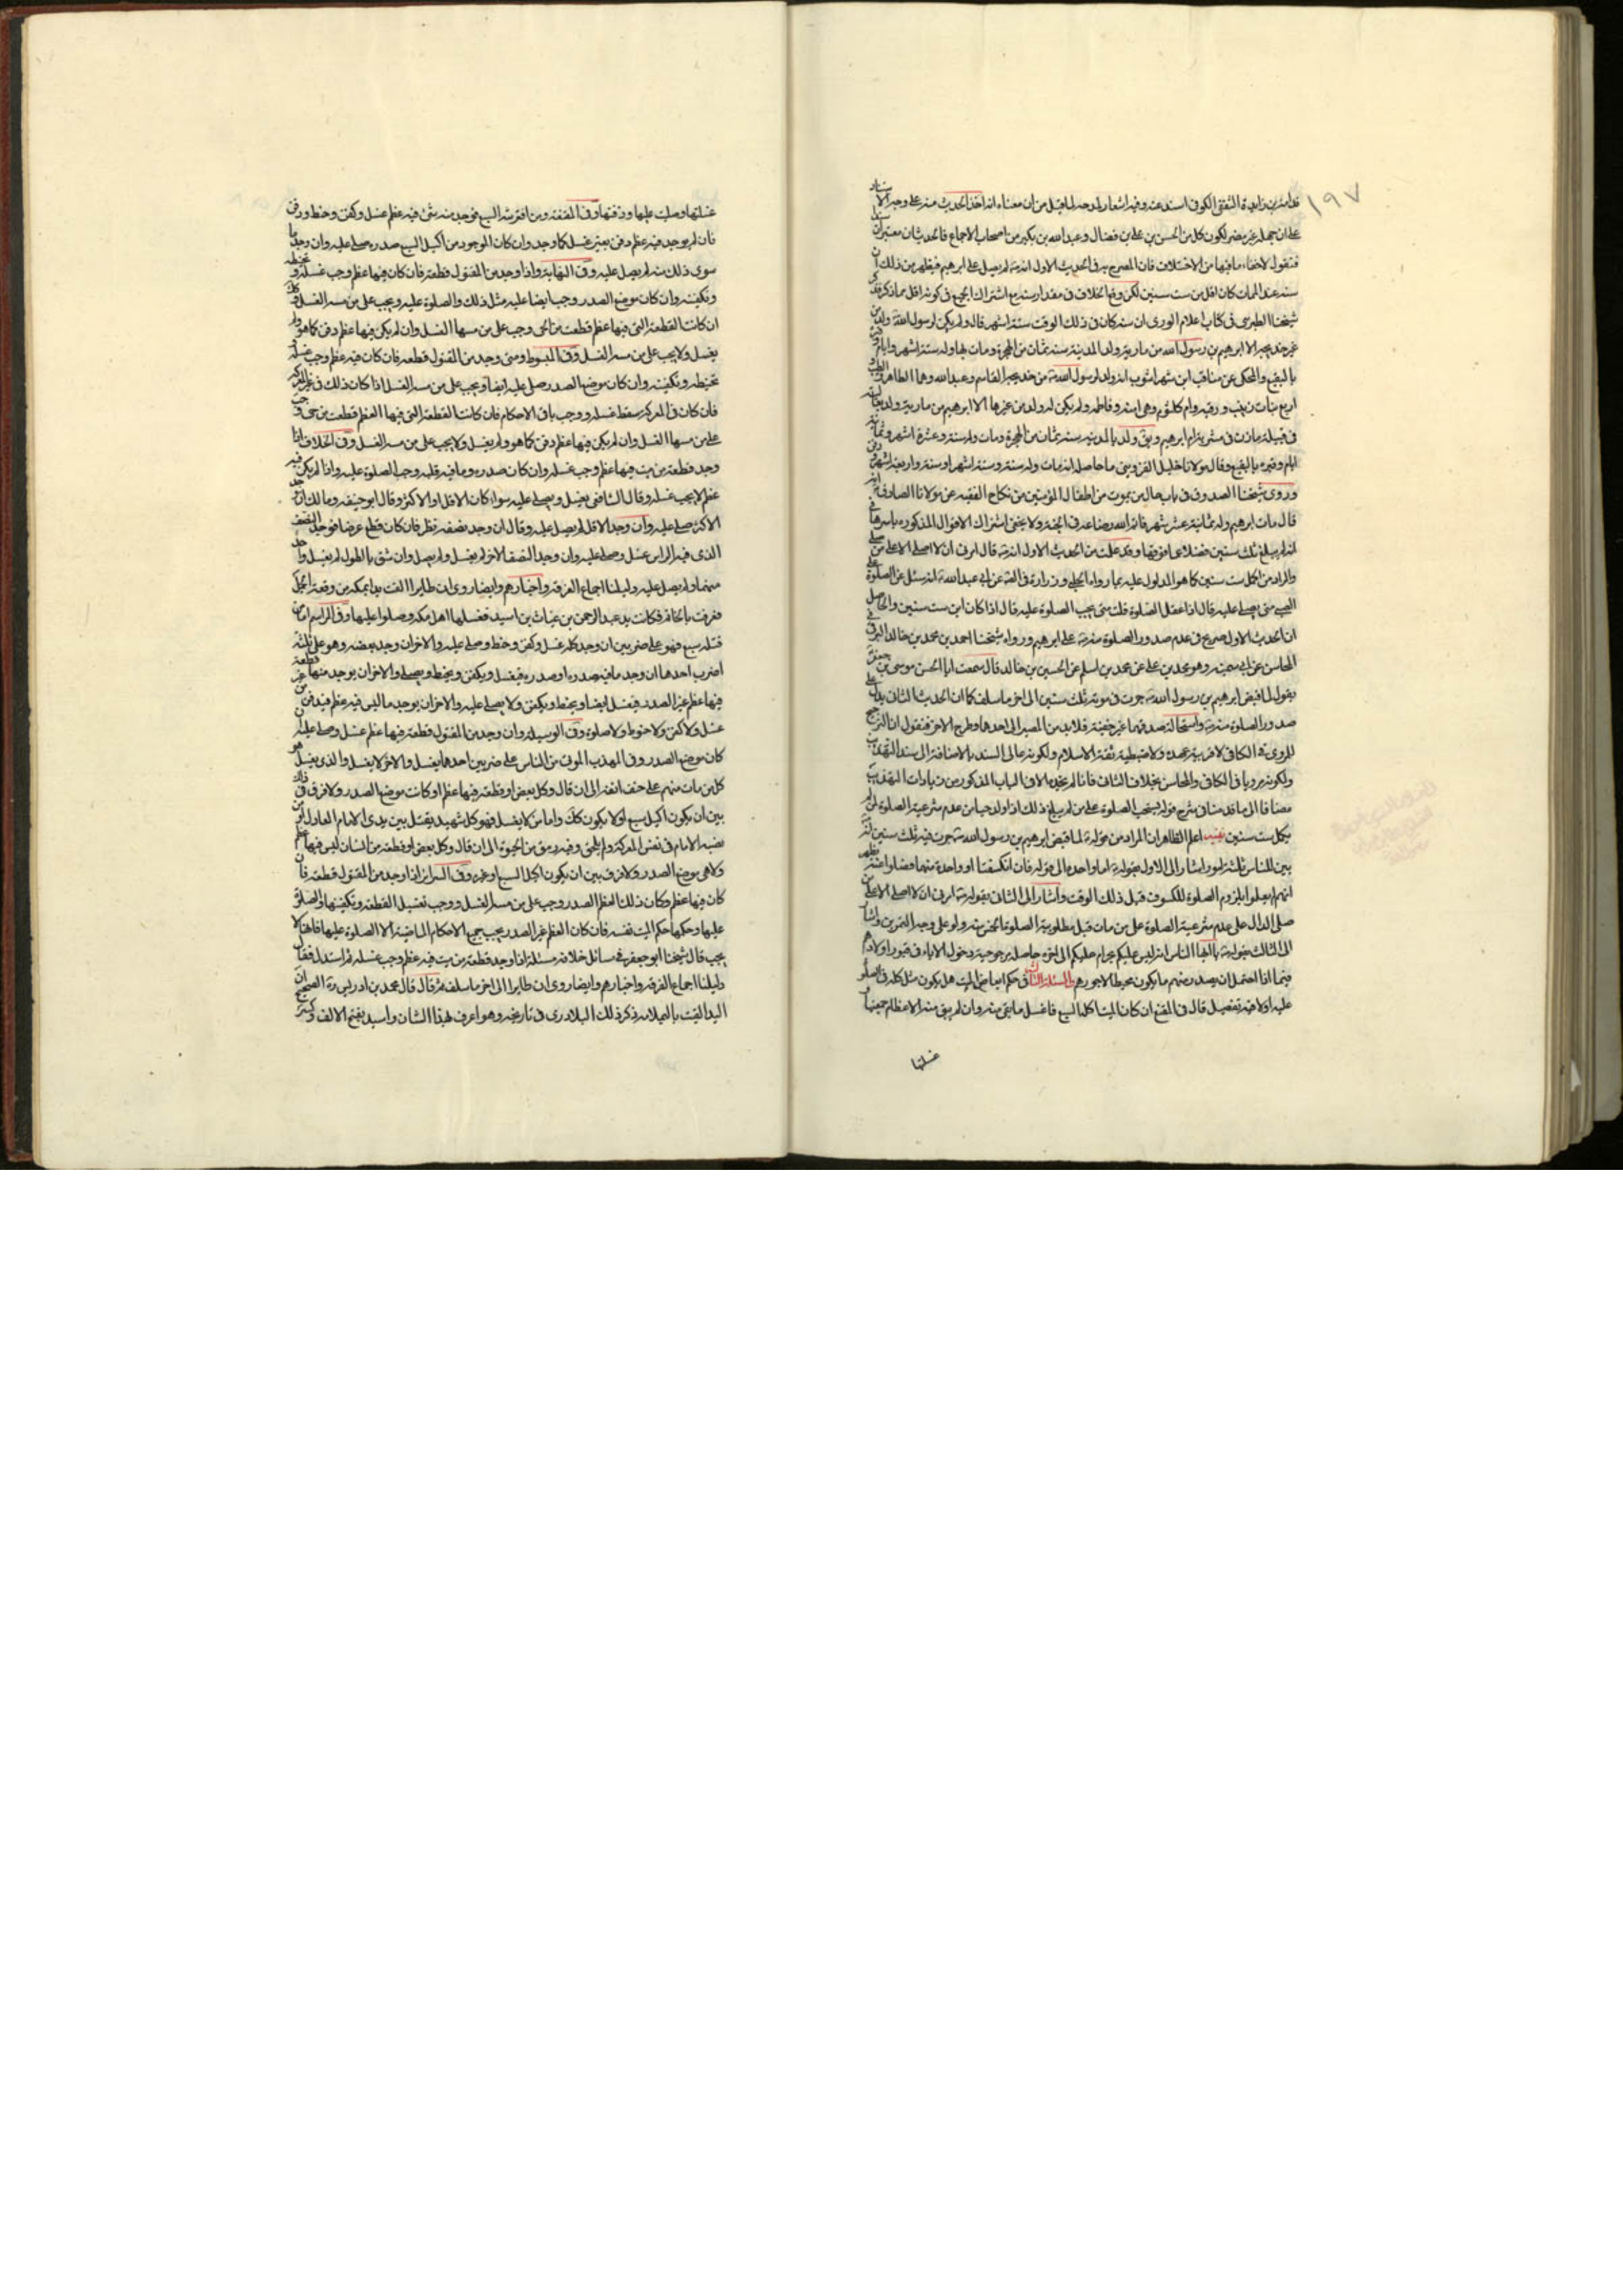 ١٩٧
الثقفي الكوفي اسند عنه وفيه اشعار لمدحه لما قيل من ان معناه انه اخذ الحديث منه على وجه الاسناد
على ان جهله غير مضر لكون كل من الحسن بن علي بن فضال وعبد الله بن بكير من اصحاب الاجماع فالحديثان معتبران سندا
فنقول لاخفاء ما فيها من الاختلاف فان المصرح به في الحديث الاول انه لم يصل على ابرهيم فيظهر من ذلك ان
سنه عند الممات كان اقل من ست سنين لكن وقع الخلاف في مقدار سنه مع اشتراك الجميع في كونه اقل مما ذكر فذكر
شيخنا الطبرسي في كتاب اعلام الورى ان سنه كان في ذلك الوقت سنة اشهر قال ولم يكن لرسول الله ولد من
غير خديجة الا ابرهيم بن رسول الله من مارية ولد بالمدينة سنة ثمان من الهجرة ومات بها وله سنة اشهر وايام وقبره
بالبقيع والمحكى عن مناقب ابن شهر اشوب انه ولد لرسول الله من خديجة القاسم وعبد الله وهما الطاهر والطيب
اربع بنات زينب ورقيه وام كلثوم وهي امنه وفاطمه ولم يكن له ولد من غيرها الا ابرهيم من مارية ولد بعالية
في قبيلة مازن في مشربة ام ابرهيم ويق ولد بالمدينه سنه ثمان من الهجرة ومات وله سنة وعشرة اشهر وثمانية
ايام وقبره بالبقيع وقال مولانا خليل القزويني ما حاصله انه مات وله سنة وستة اشهر او سنة واربعة اشهر
وروى شيخنا الصدوق في باب حال من يموت من اطفال المؤمنين من نكاح الفقيه عن مولانا الصادق انه
قال مات ابرهيم وله ثمانية عشر شهر فاتم الله رضاعه في الجنة ولا يخفى اشتراك الاقوال المذكوره باسرها في
انه لم يبلغ ثلث سنين فضلا عما فوقها وقد علمت من الحديث الاول انه قال امرني ان لا اصلي الا على من صلى
والمراد من اكمل ست سنين كما هو المدلول عليه بما رواه الحلبي وزرارة في الفقيه عن ابي عبد الله انه سئل عن الصلوة على
الصبي متى يصلى عليه قال اذا عقل الصلوة قلت متى يجب الصلوة عليه قال اذا كان ابن ست سنين والحاصل
ان الحديث الاول صريح في عدم صدور الصلوة منه على ابرهيم ورواه شيخنا احمد بن محمد بن خالد البرقي في
المحاسن عن ابي سمينه وهو محمد بن علي عن محمد بن اسلم عن الحسين بن خالد قال سمعت ابا الحسن موسى بن جعفر
يقول لما قبض ابرهيم بن رسول الله جرت في موته ثلث سنين الى اخر ما سلف كما ان الحديث الثاني يدل على
صدور الصلوة منه واستحالة صدقهما غير خفية فلابد من المصير الى احدهما وطرح الاخر فنقول ان الترجيح
للمروي في الكافي لاقربية عهده ولاضبطية ثقة الاسلام ولكونه عالي السند بالاضافة الى سند التهذيب
ولكونه مرويا في الكافي والمحاسن بخلاف الثاني فانا لم نجده الا في الباب المذكور من زيادات التهذيب
مضافا الى ما قدمناه في شرح قوله يستحب الصلوة على من لم يبلغ ذلك اذا ولد حيا من عدم شرعية الصلوة لمن لم
يكمل ست سنين تنبيه اعلم الظاهر ان المراد من قوله لما قبض ابرهيم بن رسول الله جرت فيه ثلث سنين انه
بين للناس ثلثة امور اشار الى الاول بقوله اما واحدة الى قوله فان انكسفتا او واحدة منهما فصلوا عنه يظهر
انهم لم يعلموا بلزوم الصلوة للكسوف قبل ذلك الوقت واشار الى الثاني بقوله امرني ان لا اصلي الا على من
صلى الدال على عدم شرعية الصلوة على من مات قبل مطلوبية الصلوة منه ولو على وجه التمرين واشار
الى الثالث بقوله يا ايها الناس انه ليس عليكم بحرام عليكم الى اخره حاصله مرجوحية دخول الاباء في قبور اولادهم
فيما اذا احتمل ان يصدر منهم ما يكون محبطا لاجورهم المسئلة الثانيه في حكم ابعاض الميت هل يكون مثل كله في الصلوة
عليه او لا فيه تفصيل قال في المقنع ان كان الميت اكله السبع فاغسل ما بقي منه وان لم يبق منه الا عظام جمعتها
غسلتها
غسلتها وصليت عليها ودفنتها وفي المقنعه ومن افترسه السبع فوجد منه شئ فيه عظم غسل وكفن وحنط ودفن
فان لم يوجد فيه عظم دفن بغير غسل كما وجد وان كان الموجود من اكيل السبع صدره صلى عليه وان وجد ما
سوى ذلك منه لم يصل عليه وفي النهاية واذا وجد من المقتول قطعة فان كان فيها عظم وجب غسله وتحنيطه
وتكفينه وان كان موضع الصدر وجب ايضا عليه مثل ذلك والصلوة عليه ويجب على من مسه الغسل وكذلك
ان كانت القطعة التي فيها عظم قطعت من الحى وجب على من مسها الغسل وان لم يكن فيها عظم دفن كما هو ولم
يغسل ولا يجب على من مسه الغسل وفي المبسوط ومتى وجد من المقتول قطعه فان كان فيه عظم وجب غسله
تحنيطه وتكفينه وان كان موضع الصدر صلى عليه ايضا ويجب على من مسه الغسل اذا كان ذلك في غير المعركه
فان كان في المعركة سقط غسله ووجب باقى الاحكام فان كانت القطعة التي فيها العظم قطعت من حى وجب
على من مسها الغسل وان لم يكن فيها عظم دفن كما هو ولم يغسل ولا يجب على من مسه الغسل وفي الخلاف اذا
وجد قطعة من ميت فيها عظم وجب غسله وان كان صدره وما فيه قلبه وجب الصلوة عليه واذا لم يكن فيه
عظم لا يجب غسله وقال الشافعي يغسل ويصلى عليه سواء كان الاقل او الاكثر وقال ابو حنيفه ومالك ان وجد
الاكثر صلى عليه وان وجد الاقل لم يصل عليه وقال ان وجد نصفه نظر فان كان قطع عرضا فوجد النصف
الذي فيه الراس غسل وصلى عليه وان وجد النصف الاخر لم يغسل ولم يصل وان شق بالطول لم يغسل واحد
منهما ولم يصل عليه دليلنا اجماع الفرقه واخبارهم وايضا روى ان طايرا القت يدا بمكه من وقعة الجمل
فعرفت بالخاتم فكانت يد عبد الرحمن بن عتاب بن اسيد فغسلها اهل مكه وصلوا عليها وفي المراسم اما من
قتله سبع فهو على ضربين ان وجد كله غسل وكفن وحنط وصلى عليه والاخر ان وجد بعضه وهو على ثلثة
اضرب احدها ان وجد ما فيه صدره او صدره فيغسل ويكفن ويحنط ويصلى والاخر ان يوجد منها قطعة
فيها عظم غير الصدر فيغسل ايضا ويحنط ويكفن ولا يصلى عليه والاخر ان يوجد ما ليس فيه عظم فيدفن من غير
غسل ولا كفن ولا حنوط ولا صلوة وفي الوسيلة وان وجد من المقتول قطعة فيها عظم غسل وصلى عليه ان
كان موضع الصدر وفي المهذب الموتى من الناس على ضربين احدهما يغسل والاخر لا يغسل والذي يغسل هو
كل من مات منهم على حتف انفه الى ان قال وكل بعض او قطعة فيها عظم او كانت موضع الصدر ولا فرق في ذلك
بين ان يكون اكيل سبع او لا يكون كك واما من لا يغسل فهو كل شهيد يقتل بين يدي الامام العادل او من
نصبه الامام في نفس المعركة ولم يلحق وفيه رمق من الحيوة الى ان قال وكل بعض او قطعة من انسان ليس فيها عظم
ولا هي موضع الصدر ولا فرق بين ان يكون اكل السبع او غيره وفي السرائر اذا وجد من المقتول قطعة فان
كان فيها عظم وكان ذلك العظم الصدر وجب على من مسه الغسل ووجب تغسيل القطعه وتكفينها والصلوة
عليها وحكمها حكم الميت نفسه فان كان العظم غير الصدر يجب جميع الاحكام الماضية الا الصلوة عليها فانها لا
يجب قال شيخنا ابو جعفر في مسائل خلافه مسئلة اذا وجد قطعة من ميت فيه عظم وجب غسله ثم استدل فقال
دليلنا اجماع الفرقة واخبارهم وايضا روى ان طايرا الى اخر ما سلف ثم قال قال محمد بن ادريس ره الصحيح ان
اليد القيت باليمامه ذكر ذلك البلاذري في تاريخه وهو اعرف بهذا الشان واسيد بفتح الالف وكسر